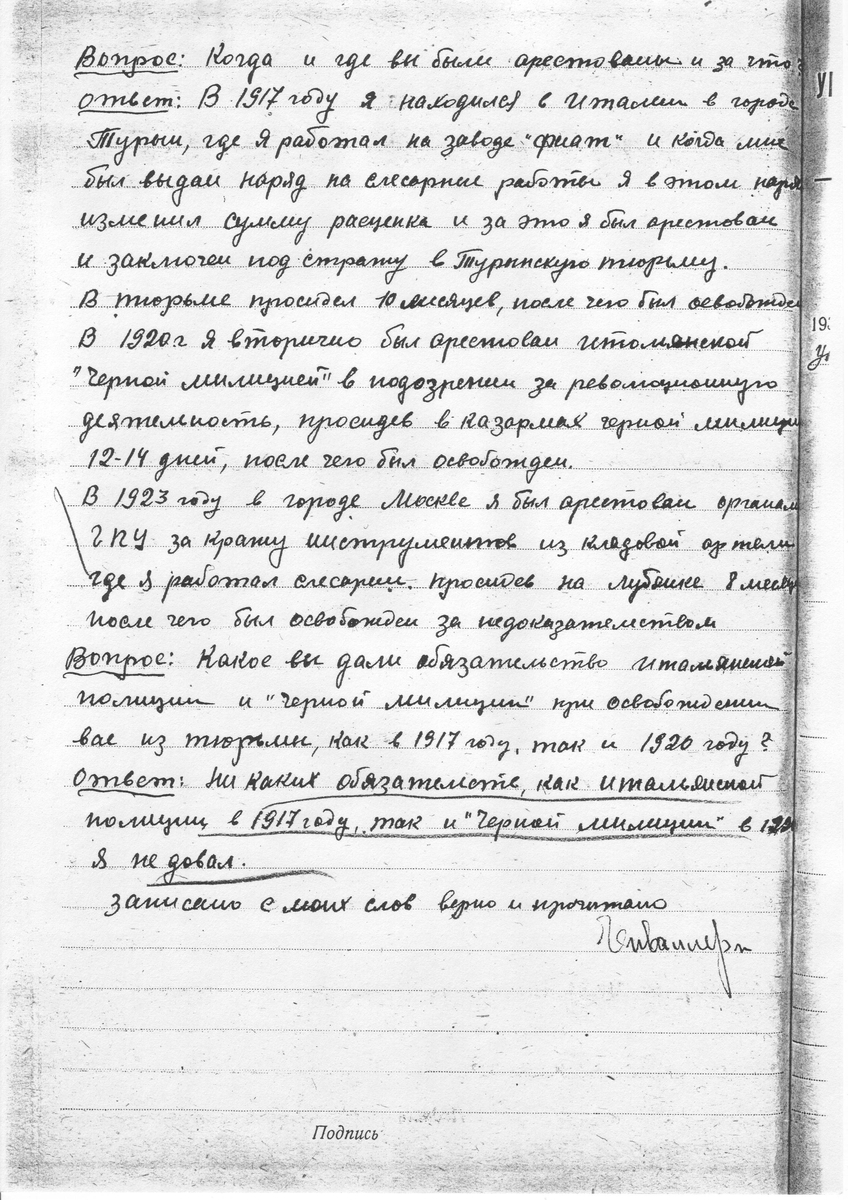 Вопрос: Когда и где вы были арестованы и за что?
Ответ: В 1917 году я находился в Италии в городе
Турын, где я работал на заводе "фиат" и когда мне
был выдан наряд на слесарные работы я в этом наря
изменил сумму расценка и за это я был арестован
и заключен под стражу в Турынскую тюрьму.
В тюрьме просидел 10 месяцев, после чего был освобожден
В 1920 г я вторично был арестован итальянской
"Черной милицией" в подозрении за революционную
деятельность, просидев в казармах черной милиции
12-14 дней, после чего был освобожден.
В 1923 году в городе Москве я был арестован органам
ГПУ за кражу инструментов из кладовой артели
где я работал слесарем. просидев на лубянке 8 месяц
после чего был освобожден за недоказательством
Вопрос: Какое вы дали обязательство итальянской
полиции и "Черной милиции" при освобождении
вас из тюрьмы, как в 1917 году, так и 1920 году?
Ответ: Ни каких обязательств, как итальянской
полиции в 1917 году, так и "Черной милиции" в 192
я не довал.
Записано с моих слов верно и прочитано
Подпись
УІ
193